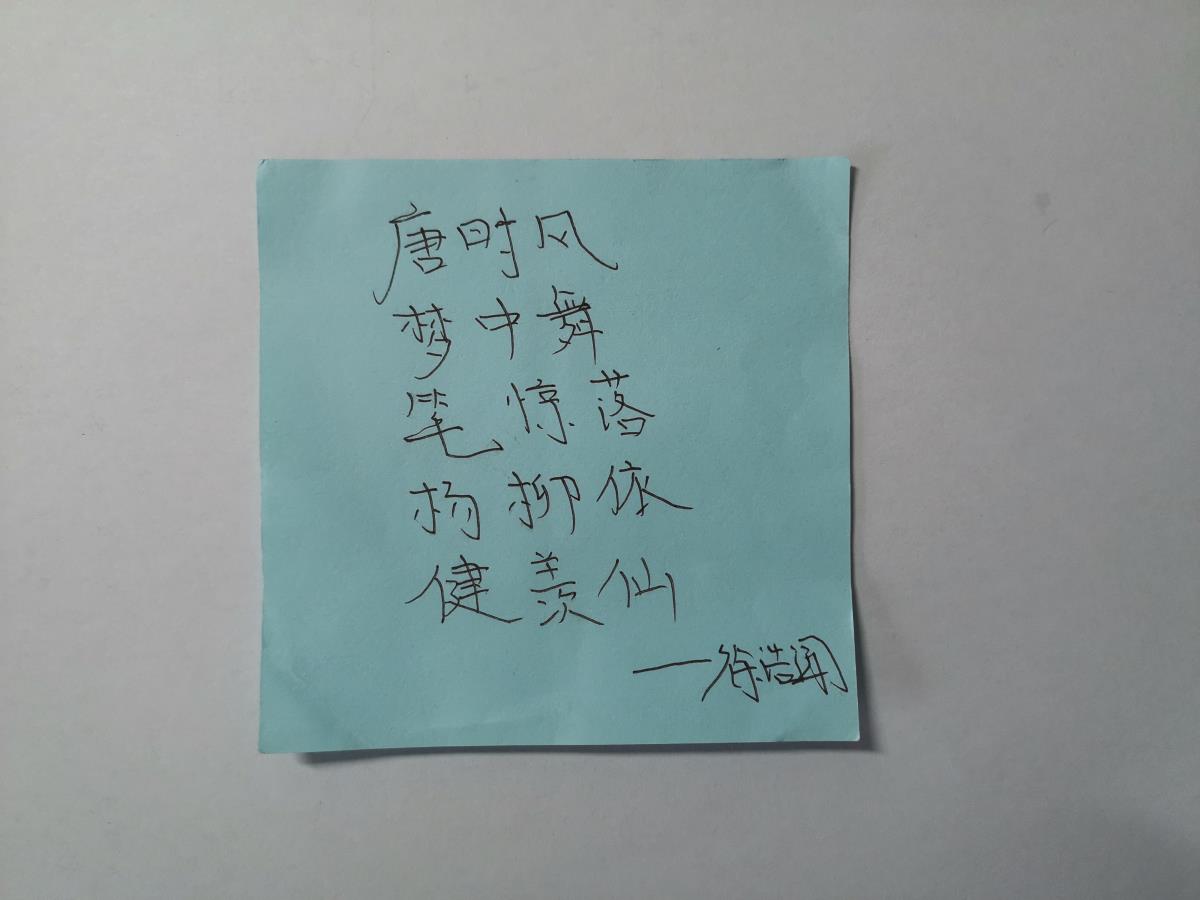 唐时风
梦中舞
笔惊落
杨柳依
健羡仙
——徐浩闻